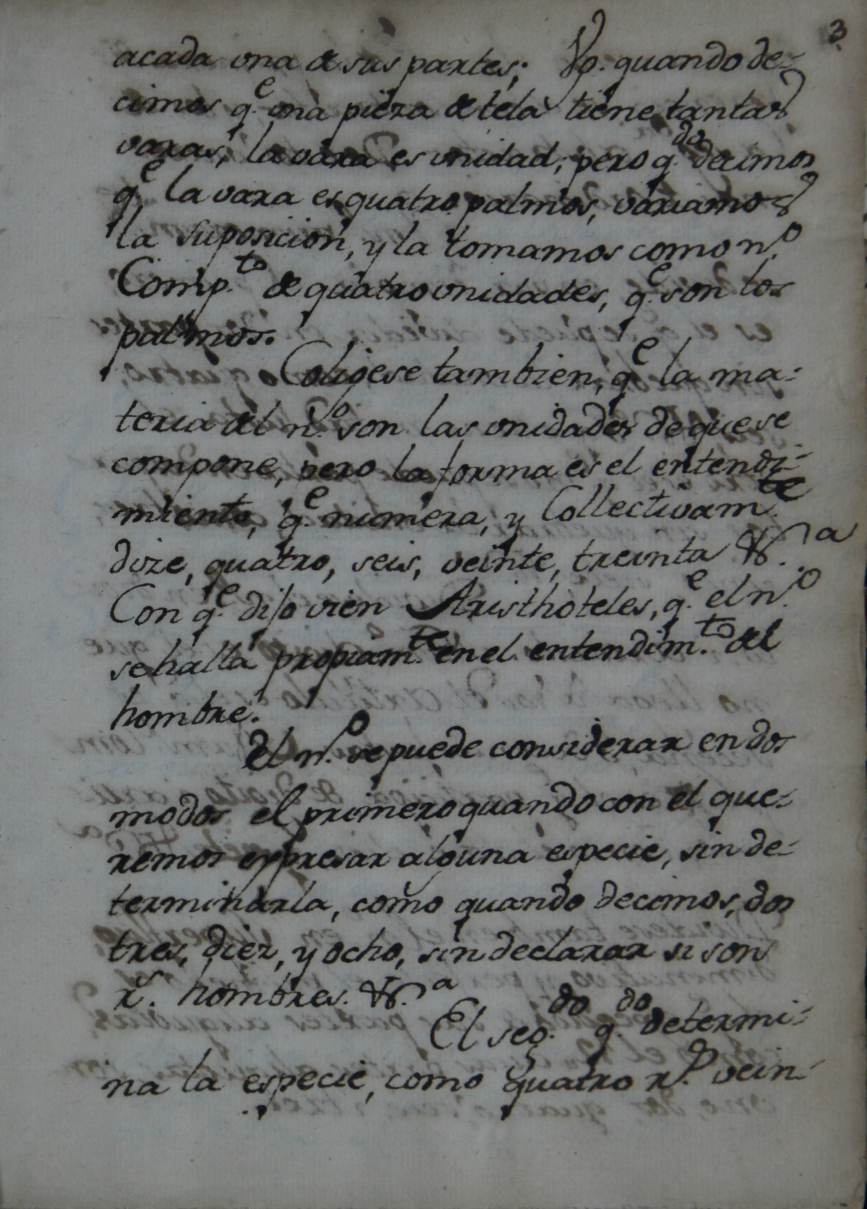 3
acada una de sus partes; Vg. quando de-
cimos q.e una pieza de tela tiene tantas
varas, la vara es unidad; pero q.do decimos
q.e la vara es quatro palmos, variamos
la suposicion, y la tomamos como n.o
Comp.to de quatro unidades, q.e son los
palmos.
Coligese tambien, q.e la ma-
teria del n.o son las unidades de que se
compone, pero la forma es el entendi-
miento, q.e numera, y Collectivam.te
dize, quatro, seis, veinte, treinta &.a
Con q.e dijo vien Aristhoteles, q.e el n.o
se halla propiam.te en el entendim.to del
hombre.
El n.o se puede considerar en dos
modos el primero quando con el que-
remos expresar alguna especie, sin de-
terminarla, como quando decimos, dos
tres, diez, y ocho, sin declarar si son
r.s hombres. &.a
El seg.do q.do determi-
na la especie, como quatro r.s vein-